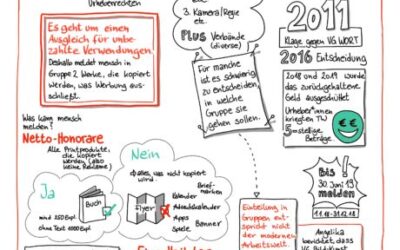 Urheberrechten
Es geht um einen
Ausgleich für unbe-
zahlte Verwendungen.
Deshalb meldet mensch in
Gruppe 2 Werke, die kopiert
werden, was Werbung aus-
schließt.
3. Kamera/Regie
etc.
Plus Verbände
(diverse)
Für manche
ist es schwierig
zu entscheiden,
in welche
Gruppe sie
gehen sollen.
2011
Klage gegen VG WORT
2016 Entscheidung
2018 und 2019 wurde
das zurückgehaltene
Geld ausgeschüttet
Urheber*innen
kriegten
5-stellige
Beträge
Was kann mensch
melden?
Netto-Honorare
Alle Printprodukte,
die kopiert
werden, (also
keine Reklame)
Ja
Buch
mind 250 Expl
ohne Text 1000 Expl
Nein
alles, was nicht kopiert
wird.
Flyer
Brief-
marken
Kalender
Adventskalender
Apps
Spiele
Banner
Einteilung in
Gruppen ent-
spricht nicht
der modernen
Arbeitswelt.
Bis
30. Juni 19
melden
Angelika
berichtet, dass